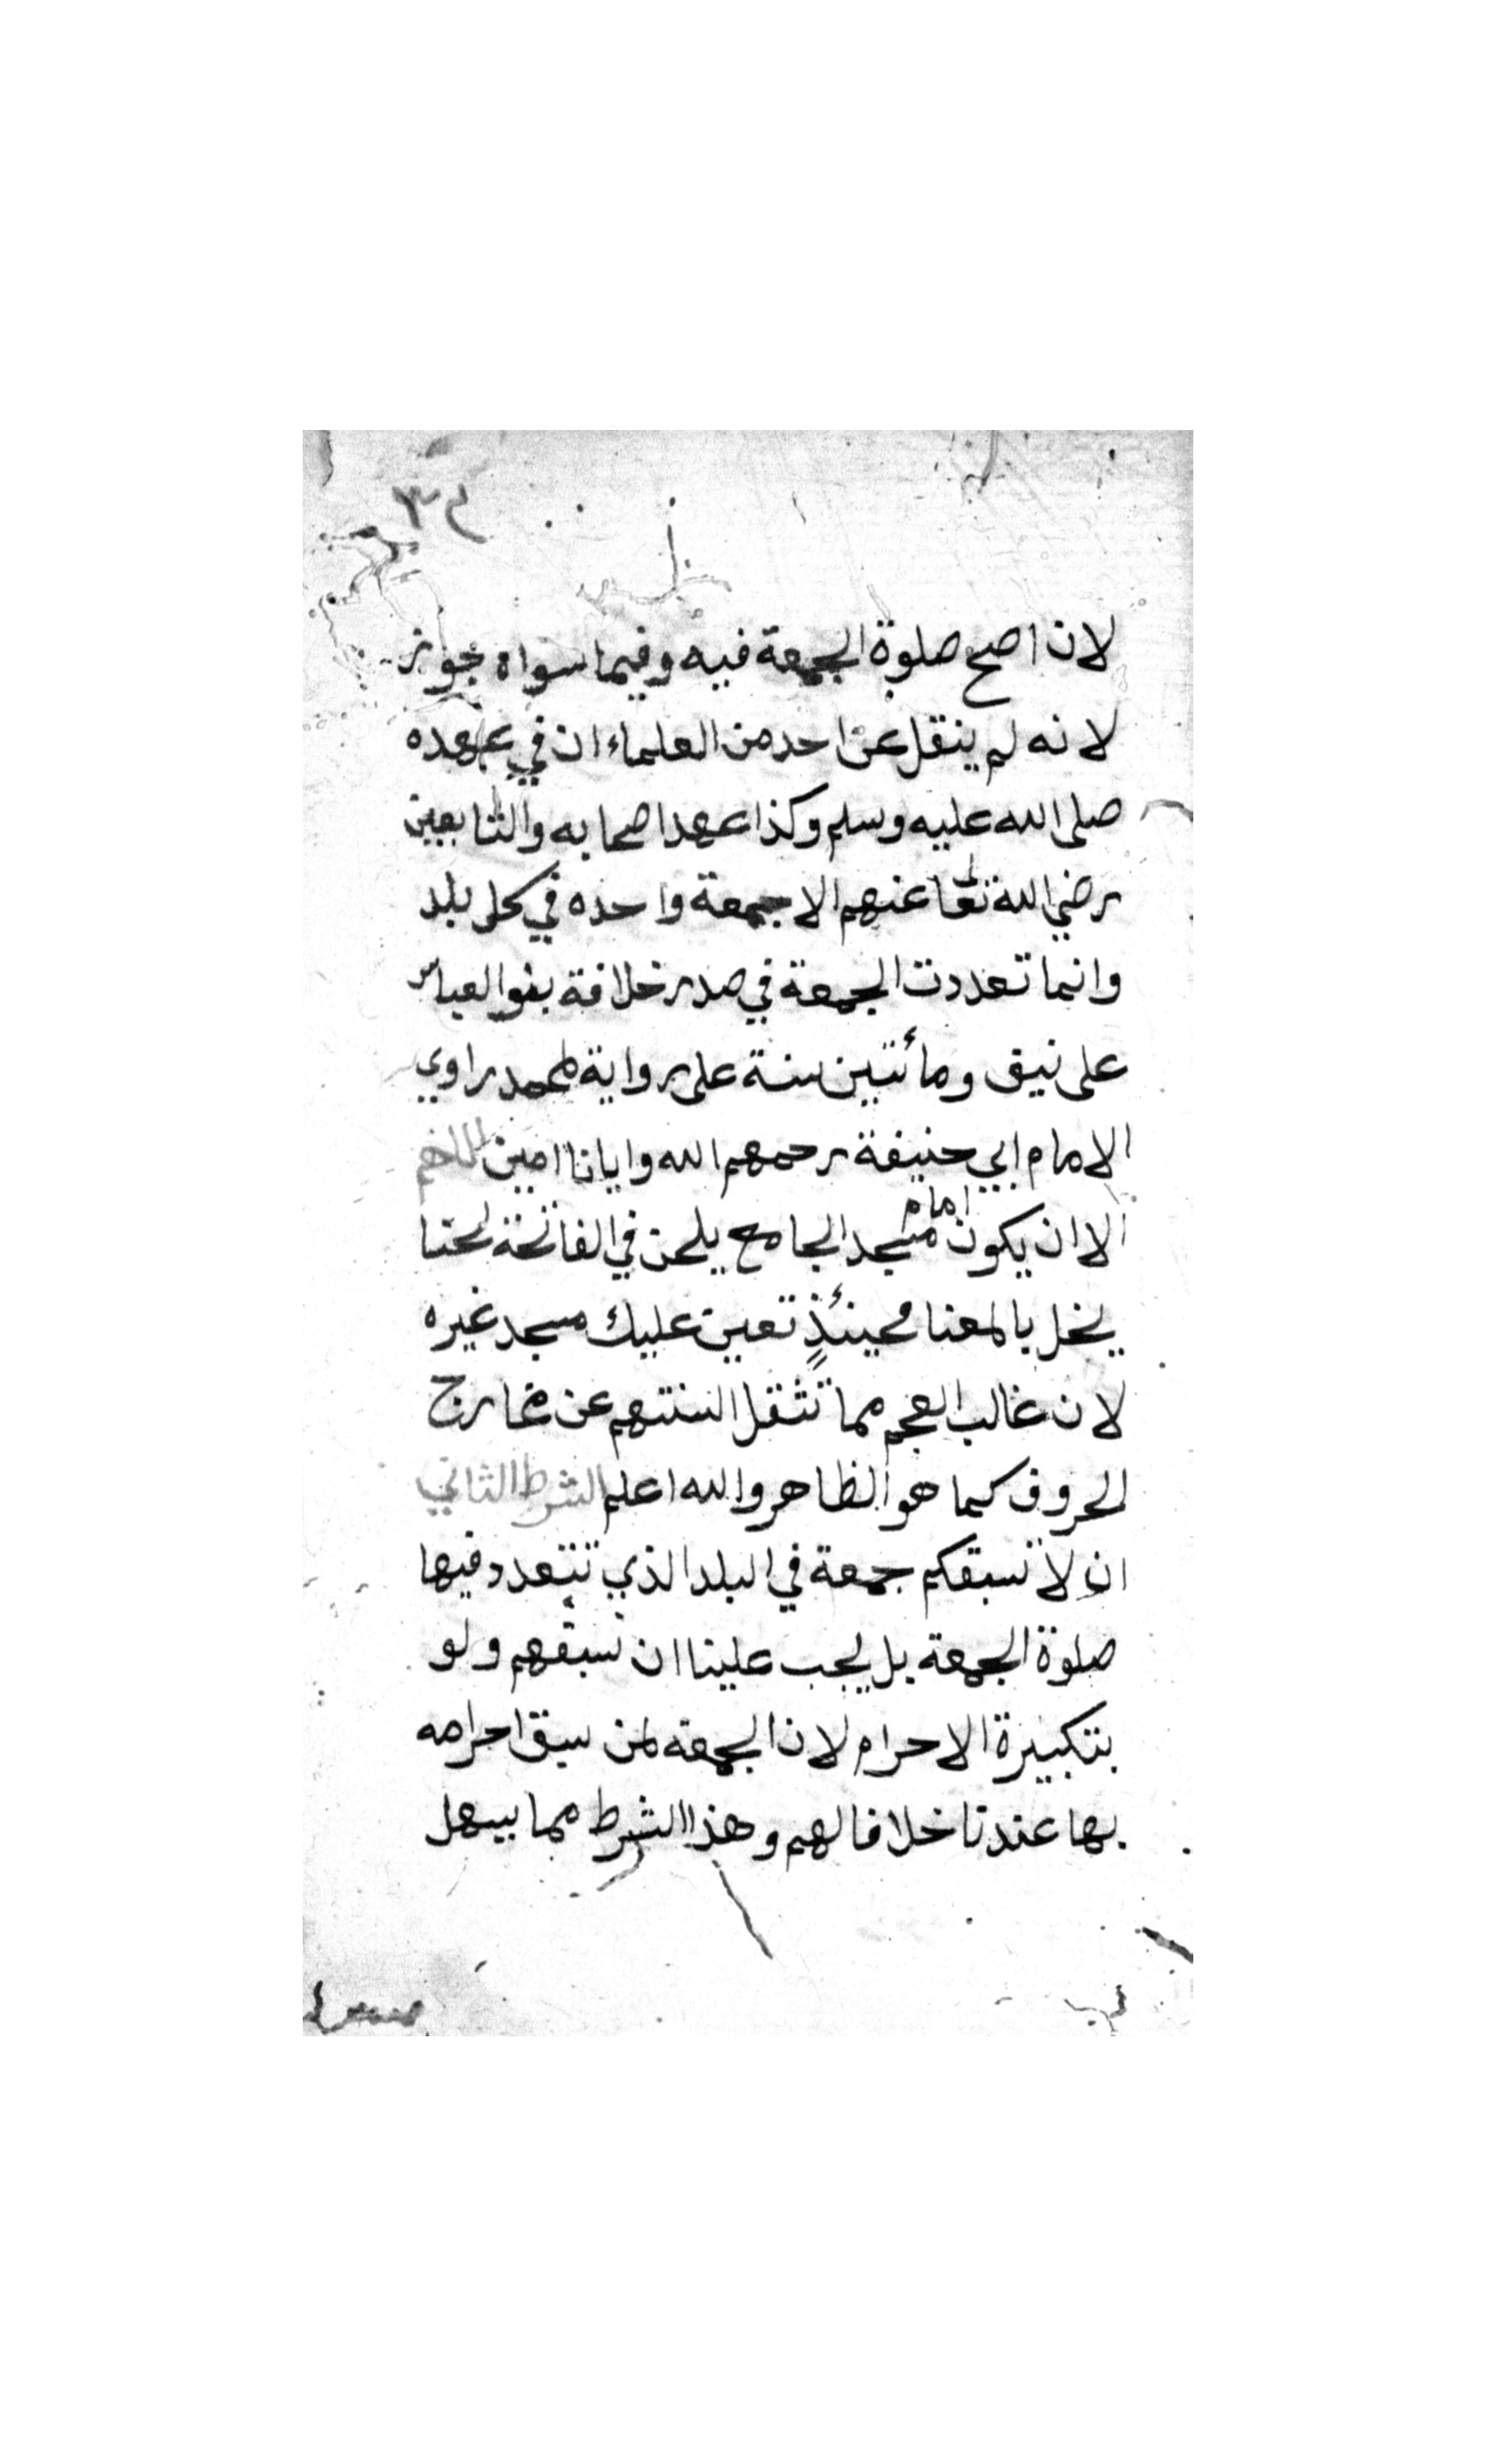 لان اصح صلوة الجمعة فيه وفيما سواه جوز
لانه لم ينقل عن احد من العلماء ان في عهده
صلى الله عليه وسلم وكذا عهد اصحابه والتابعين
رضي الله تعالى عنهم الا جمعة واحده في كل بلد
وانما تعددت الجمعة في صدر خلافة بنو العباس
على نيق ومأتين سنة على رواية لمحمد راوي
الامام ابي حنيفة رحمهم الله وايانا امين
الا ان يكون امام مسجد الجامع يلحن في الفاتحة لحنا
يخل بالمعنا فحينئذٍ تعين عليك مسجد غيره
لان غالب العجم مما تثقل السنتهم عن مخارج
الحروف كما هو الظاهر والله اعلم الشرط الثاني
ان لا تسبقكم جمعة في البلد الذي تتعدد فيها
صلوة الجمعة بل يجب علينا ان نسبقهم ولو
بتكبيرة الاحرام لان الجمعة لمن سبق احرامه
بها عندنا خلافا لهم وهذا الشرط مما يسهل